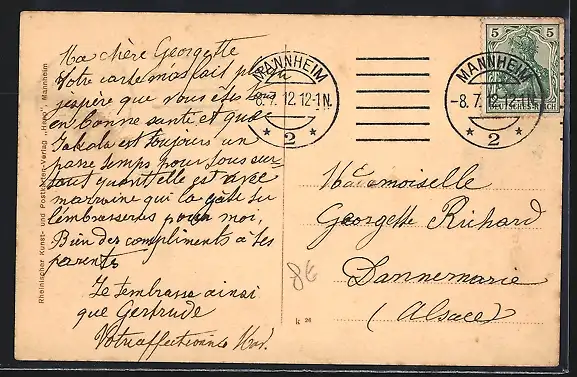 Ma chère Georgette
Votre carte m'as fait plaisir
j'espère que vous êtes tous
en bonne santé et que
est toujours un
passe temps pour vous sur
tout quant elle est avec
marraine qui la gâte tu
l'embrasseras pour moi,
Bien des compliments à tes
parents
Je t'embrasse ainsi
que Gertrude
Votre affectionnée
Rheinischer Kunst- und Postkarten-Verlag Mannheim
MANNHEIM
-8.7.12.12-1N.
* 2 *
MANNHEIM
-8.7.12
* 2 *
5 5
DEUTSCHES REICH
Mademoiselle
Georgette Richard
Dannemarie
(Alsace)
k 26